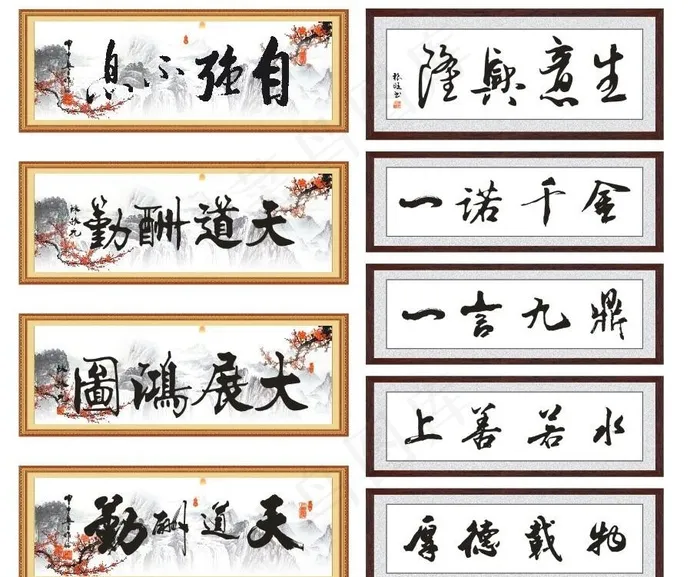 自强不息
天道酬勤
大展鴻圖
天道酬勤
生意興隆
一诺千金
一言九鼎
上善若水
厚德載物